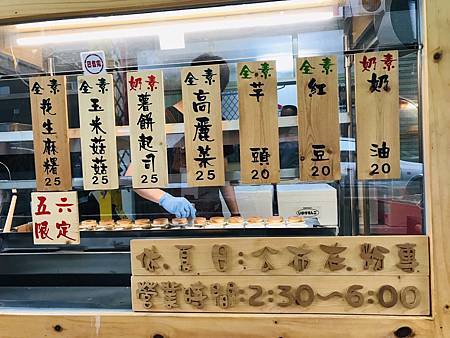 全素
花生麻糬
25
全素
玉米菇菇
25
奶素
薯餅起司
25
全素
高麗菜
25
全素
芋頭
20
全素
紅豆
20
奶素
奶油
20
五六
限定
休夏日:公布在粉專
營業時間:2:30~6:00